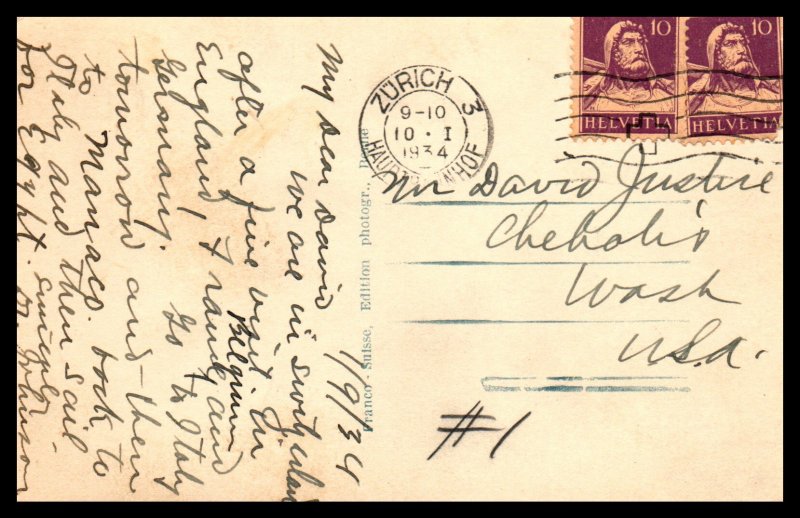 1/9/34
My dear David
we are in Switzerland
after a fine visit in
England, France and
Belgium
Germany. Go to Italy
tomorrow and then
to Monaco. back to
Italy and then sail
for Egypt. Sincerely
Johnson
Franco-Suisse, Edition photogr., Berne
ZÜRICH 3
9-10
10 · I
1934
HAUPTBAHNHOF
10
HELVETIA
10
HELVETIA
Mr David Justice
Chehalis
Wash
U.S.A.
#1